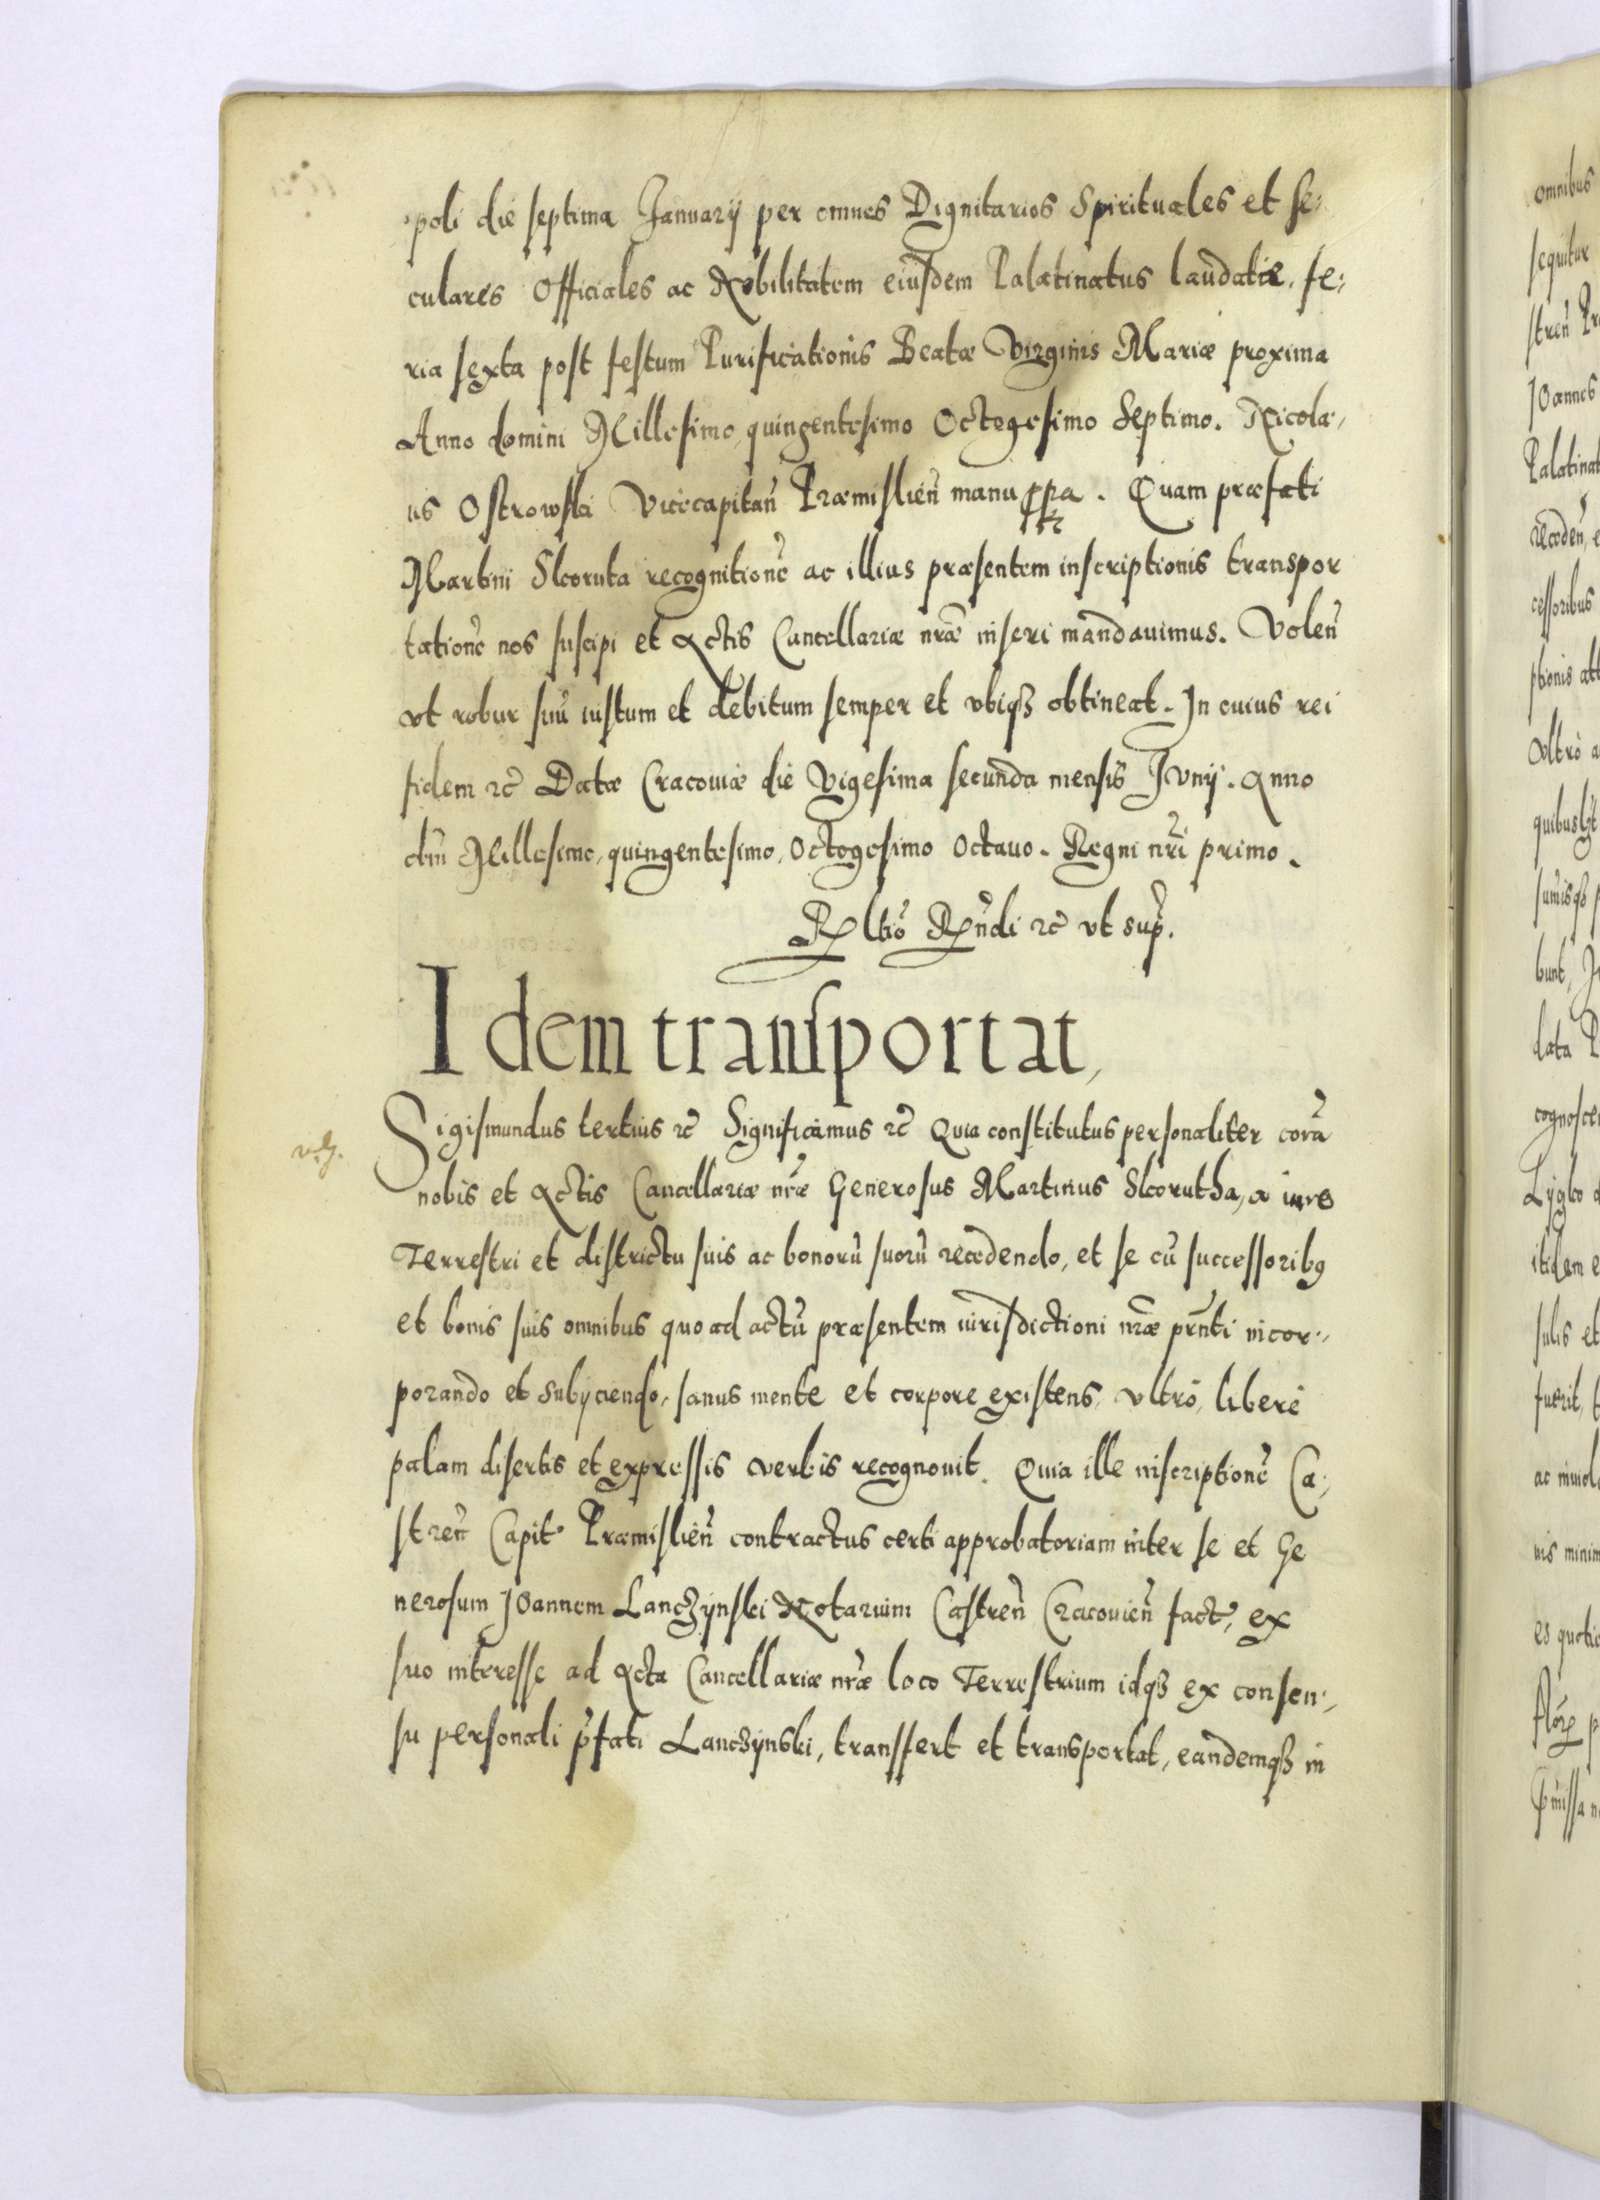 poli die septima Januarij per omnes Dignitarios Spirituales et se:
culares Officiales ac Nobilitatem eiusdem Palatinatus laudatis, fe:
ria sexta post festum Purificationis Beatæ Virginis Mariæ proxima
Anno domini Millesimo quingentesimo Octogesimo Septimo. Nicola,
us Ostrowski Vicecapitan̄ Præmislien̄ manu ppa. Quam præfati
Martini Skoruta recognitionē ac illius præsentem inscriptionis transpor
tationē nos suscipi et Actis Cancellariæ nr̄æ inseri mandauimus. Volen̄
vt robur suū iustum et debitum semper et vbiqȝ obtineat. In cuius rei
fidem ꝛc̄ Datæ Cracouiæ die Vigesima secunda mensis Junij. Anno
dn̄i Millesimo, quingentesimo, Octogesimo Octauo. Regni nr̄i primo.
Rltiō Rn̄di ꝛc̄ vt sup̄.
Idem transportat,
Sigismundus tertius ꝛc̄ Significamus ꝛc̄ Quia constitutus personaliter corā
nobis et Actis Cancellariæ nr̄æ Generosus Martinus Skorutha, a iure
Terrestri et districtu suis ac bonorū suorū recedendo, et se cū successoribꝯ
et bonis suis omnibus quo ad actū præsentem iurisdictioni nr̄æ prn̄ti incor:,
porando et subijciendo, sanus mente et corpore existens, vltrò, liberè
palam disertis et expressis verbis recognouit. Quia ille inscriptionē Ca:,
stren̄ Capit Præmislien̄ contractus certi approbatoriam inter se et Ge
nerosum Joannem Lanczynski Notarium Castren̄ Cracouien̄ fact, ex
suo interesse ad Acta Cancellariæ nr̄æ loco Terrestrium idqȝ ex consen:,
su personali p̄fati Lanczynski, transfert et transportat, eandemqȝ in